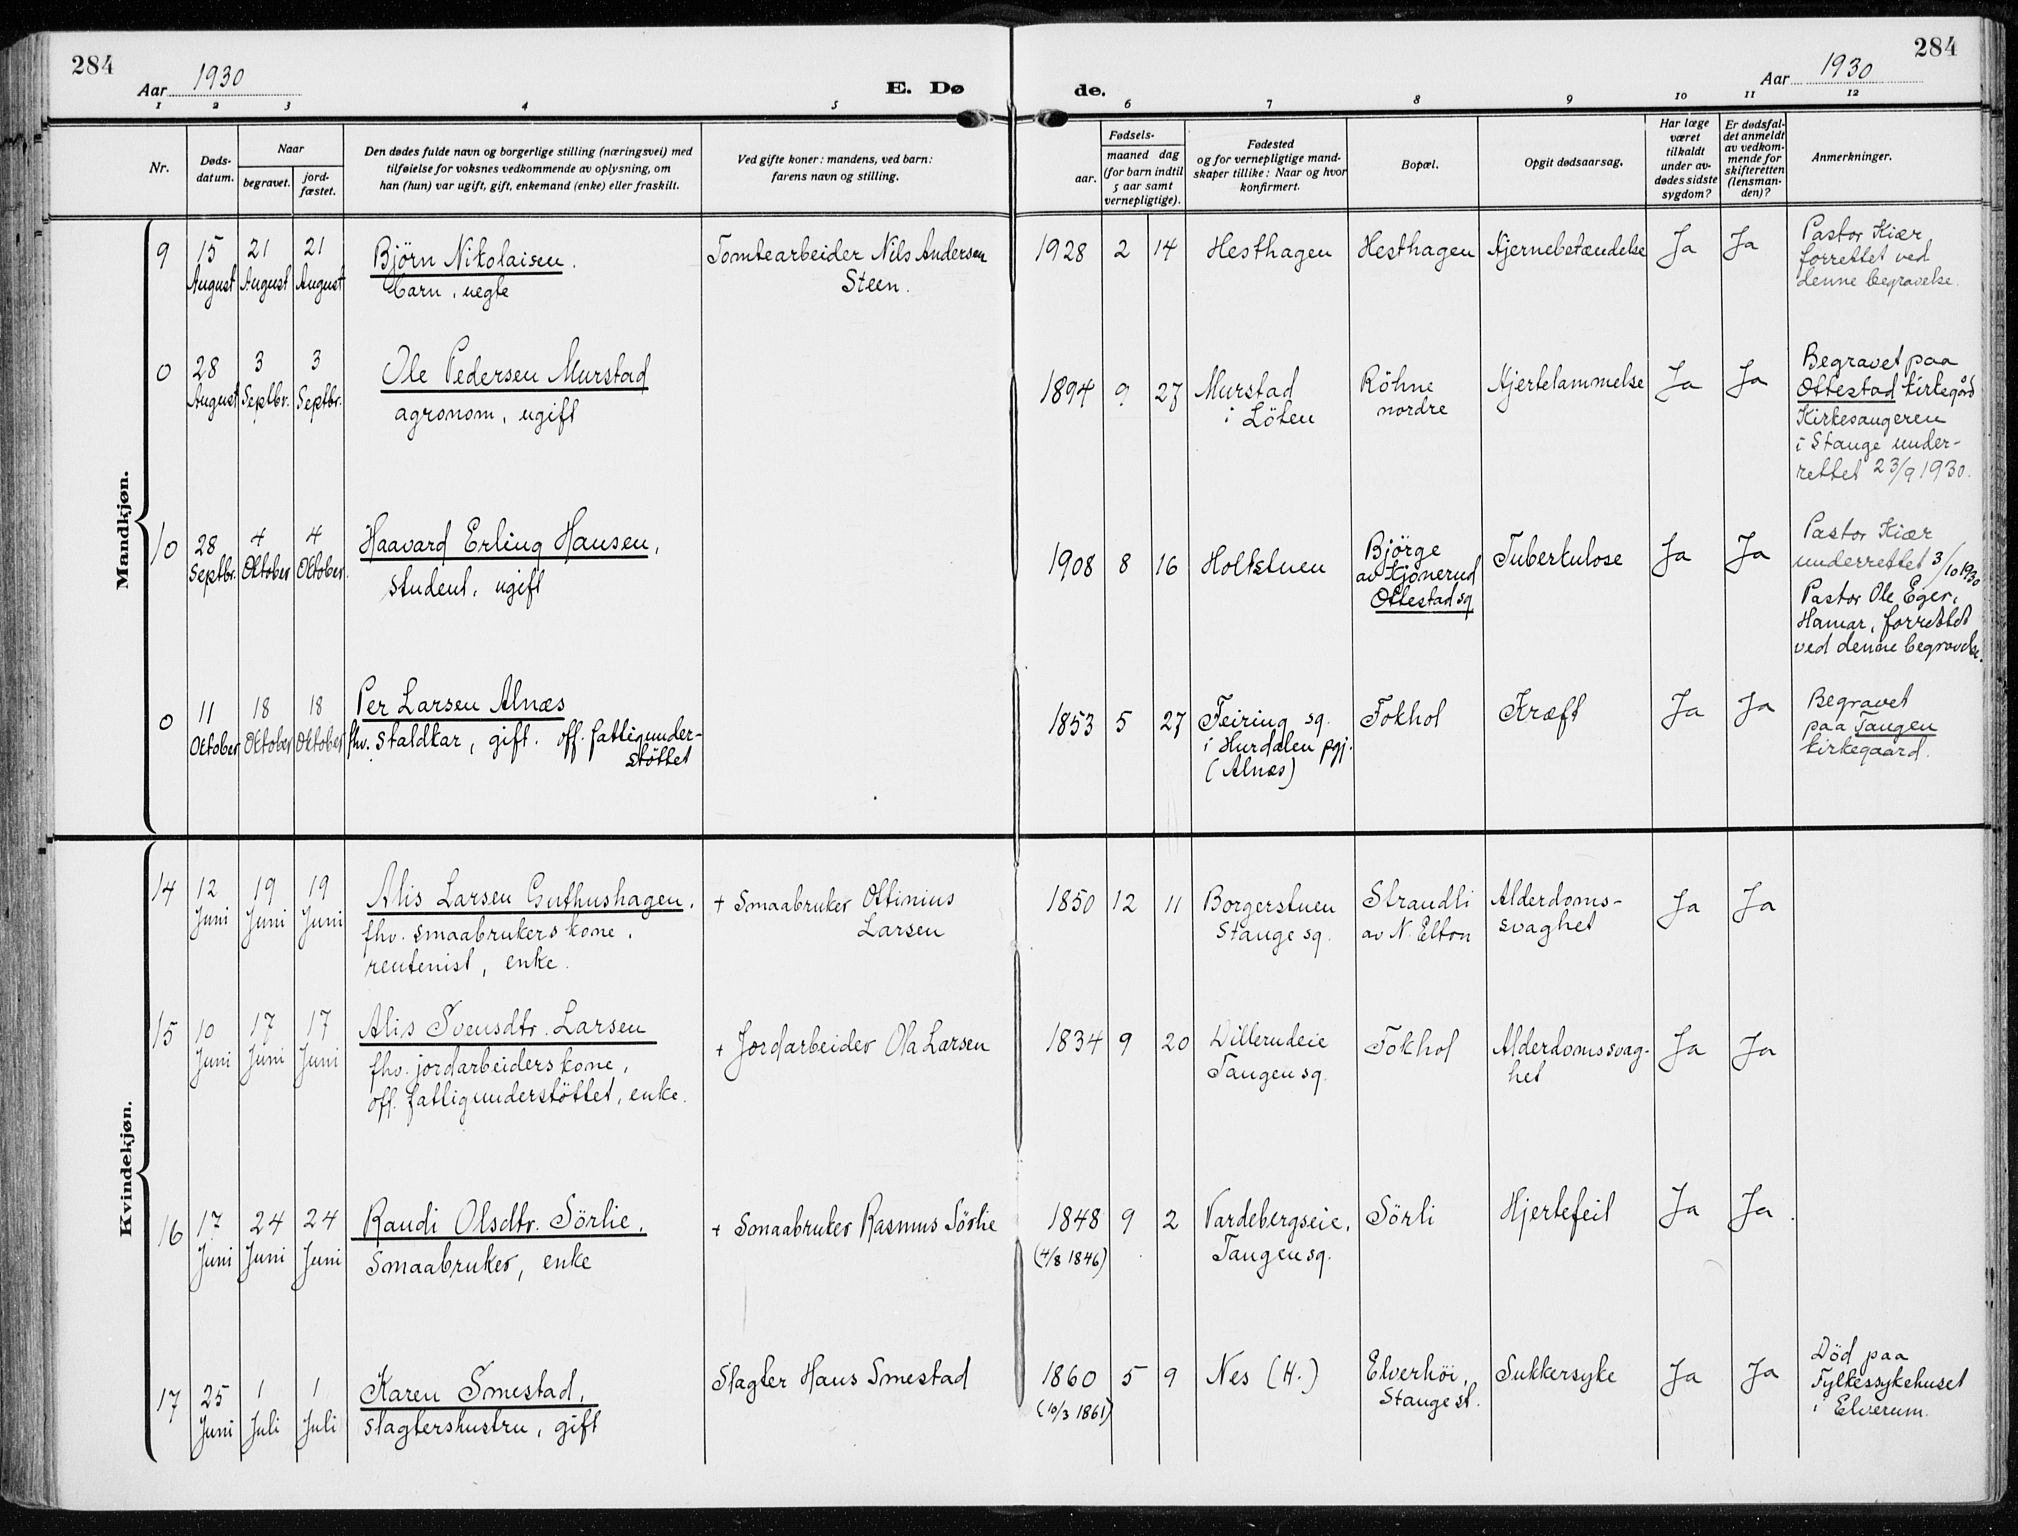 284
Aar 1930
E. Dø
de.
Aar 1930
284
1 2 3 4 5 6 7 8 9 10 11 12
Nr.
Døds-
datum.
Naar
begravet.
jord-
fæstet.
Den dødes fulde navn og borgerlige stilling (næringsvei) med
tilføielse for voksnes vedkommende av oplysning, om
han (hun) var ugift, gift, enkemand (enke) eller fraskilt.
Ved gifte koner: mandens, ved barn:
farens navn og stilling.
Fødsels-
aar.
maaned dag
(for barn indtil
5 aar samt
vernepligtige).
Fødested
og for vernepligtige mand-
skaper tillike: Naar og hvor
konfirmert.
Bopæl.
Opgit dødsaarsag.
Har læge
været
tilkaldt
under av-
dødes sidste
sygdom?
Er dødsfal-
det anmeldt
av vedkom-
mende for
skifteretten
(lensman-
den)?
Anmerkninger.
Mandkjøn.
9
15
August
21
August
21
August
Bjørn Nikolaisen.
barn, uegte
Tomtearbeider Nils Andersen
Steen.
1928 2 14
Hesthagen
Hesthagen
Hjernebetændelse
Ja
Ja
Pastor Kiær
forrettet ved
denne begravelse.
0
28
August
3
Septbr.
3
Septbr.
Ole Pedersen Murstad
agronom, ugift
1894 9 27
Murstad
i Löten
Röhne
nordre
Hjertelammelse
Ja
Ja
Begravet paa
Ottestad kirkegård
Kirkesangeren
i Stange under-
rettet 23/9 1930.
10
28
Septbr.
4
Oktober
4
Oktober
Haavard Erling Hansen,
student, ugift
1908 8 16
Holtstuen
Björge
av Hjönerud
Ottestad sq
Tuberkulose
Ja
Ja
Pastor Kiær
underrettet 3/10 1930
Pastor Ole Eger,
Hamar, forrettet
ved denne begravelse.
0
11
Oktober
18
Oktober
18
Oktober
Per Larsen Alnæs
fhv. staldkar, gift. off. fattigunder-
støttet
1853 5 27
Feiring sq.
i Hurdalen pgj.
(Alnæs)
Fokhol
Kræft
Ja
Ja
Begravet
paa Tangen
kirkegaard.
Kvindekjøn.
14
12
Juni
19
Juni
19
Juni
Alis Larsen Guthushagen,
fhv. smaabrukers kone,
rentenist, enke.
+ Smaabruker Ottinius
Larsen
1850 12 11
Borgerstuen
Stange sq.
Strandli
av N. Elton
Alderdoms-
svaghet
Ja
Ja
15
10
Juni
17
Juni
17
Juni
Alis Svensdtr. Larsen
fhv. jordarbeiders kone,
off. fattigunderstöttet, enke.
+ Jordarbeider Ola Larsen
1834 9 20
Dillerudeie
Tangen sq.
Fokhol
Alderdomssvag-
het
Ja
Ja
16
17
Juni
24
Juni
24
Juni
Randi Olsdtr. Sörlie,
Smaabruker, enke
+ Smaabruker Rasmus Sörlie
1848 9 2
(4/8 1846)
Vardebergseie,
Tangen sq.
Sörli
Hjertefeil
Ja
Ja
17
25
Juni
1
Juli
1
Juli
Karen Smestad,
slagtershustru, gift
Slagter Hans Smestad
1860 5 9
(10/3 1861)
Nes (H.)
Elverhöi,
Stange st.
Sukkersyke
Ja
Ja
Död paa
Fylkessykehuset
i Elverum.